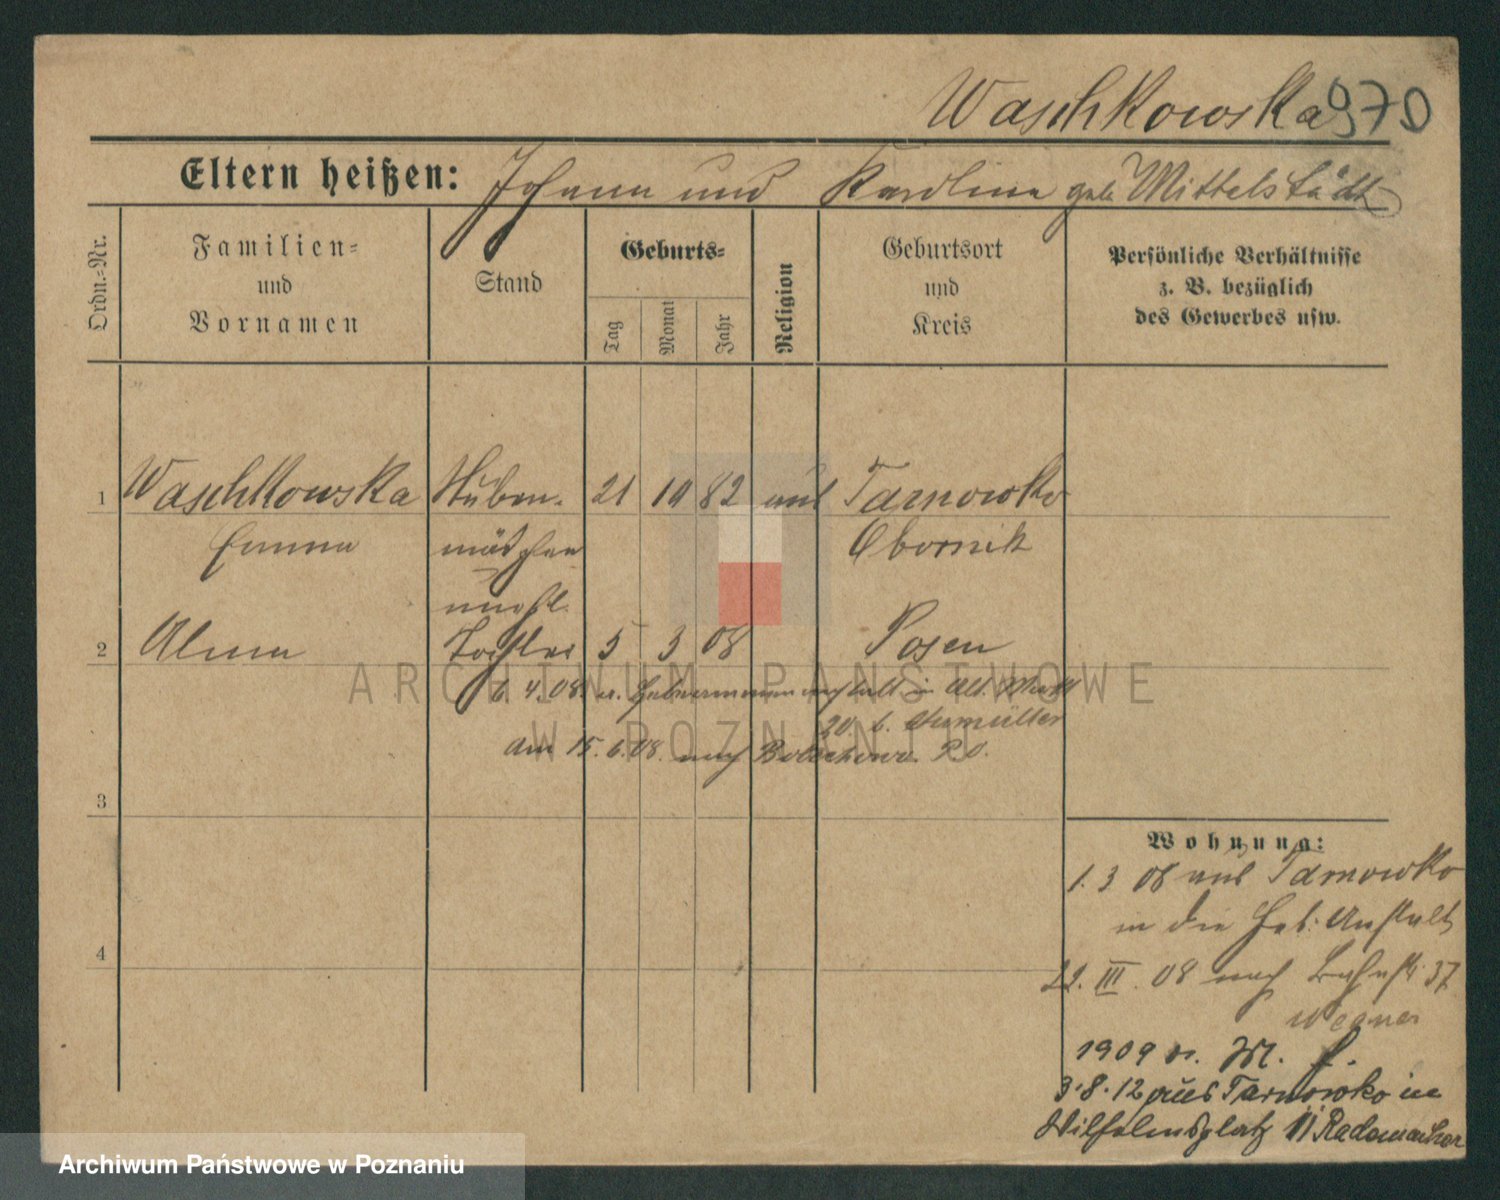 Waschkowska 970
Eltern heißen: Johann und Karoline geb. Mittelstädt
Ordn.-Nr.
Familien-
und
Vornamen
Stand
Geburts-
Tag
Monat
Jahr
Religion
Geburtsort
und
Kreis
Persönliche Verhältnisse
z. B. bezüglich
des Gewerbes usw.
1 Waschkowska Stuben- 21 10 82 Tarnowko
Emma mädchen Obornik
unehl.
2 Alma Tochter 5 3 08 Posen
6.4.08. in Alt. Markt
20. b.
am 15.6.08. nach Bolechowo P.O.
3
4
Wohnung:
1. 3 08 aus Tarnowko
in die Heb. Anstalt
22. III. 08 nach 37
Wegner
1909 v. M. f.
3.8.12 aus Tarnowko in
Wilhelmsplatz 11 Rademacher
ARCHIWUM PAŃSTWOWE
W POZNANIU
Archiwum Państwowe w Poznaniu